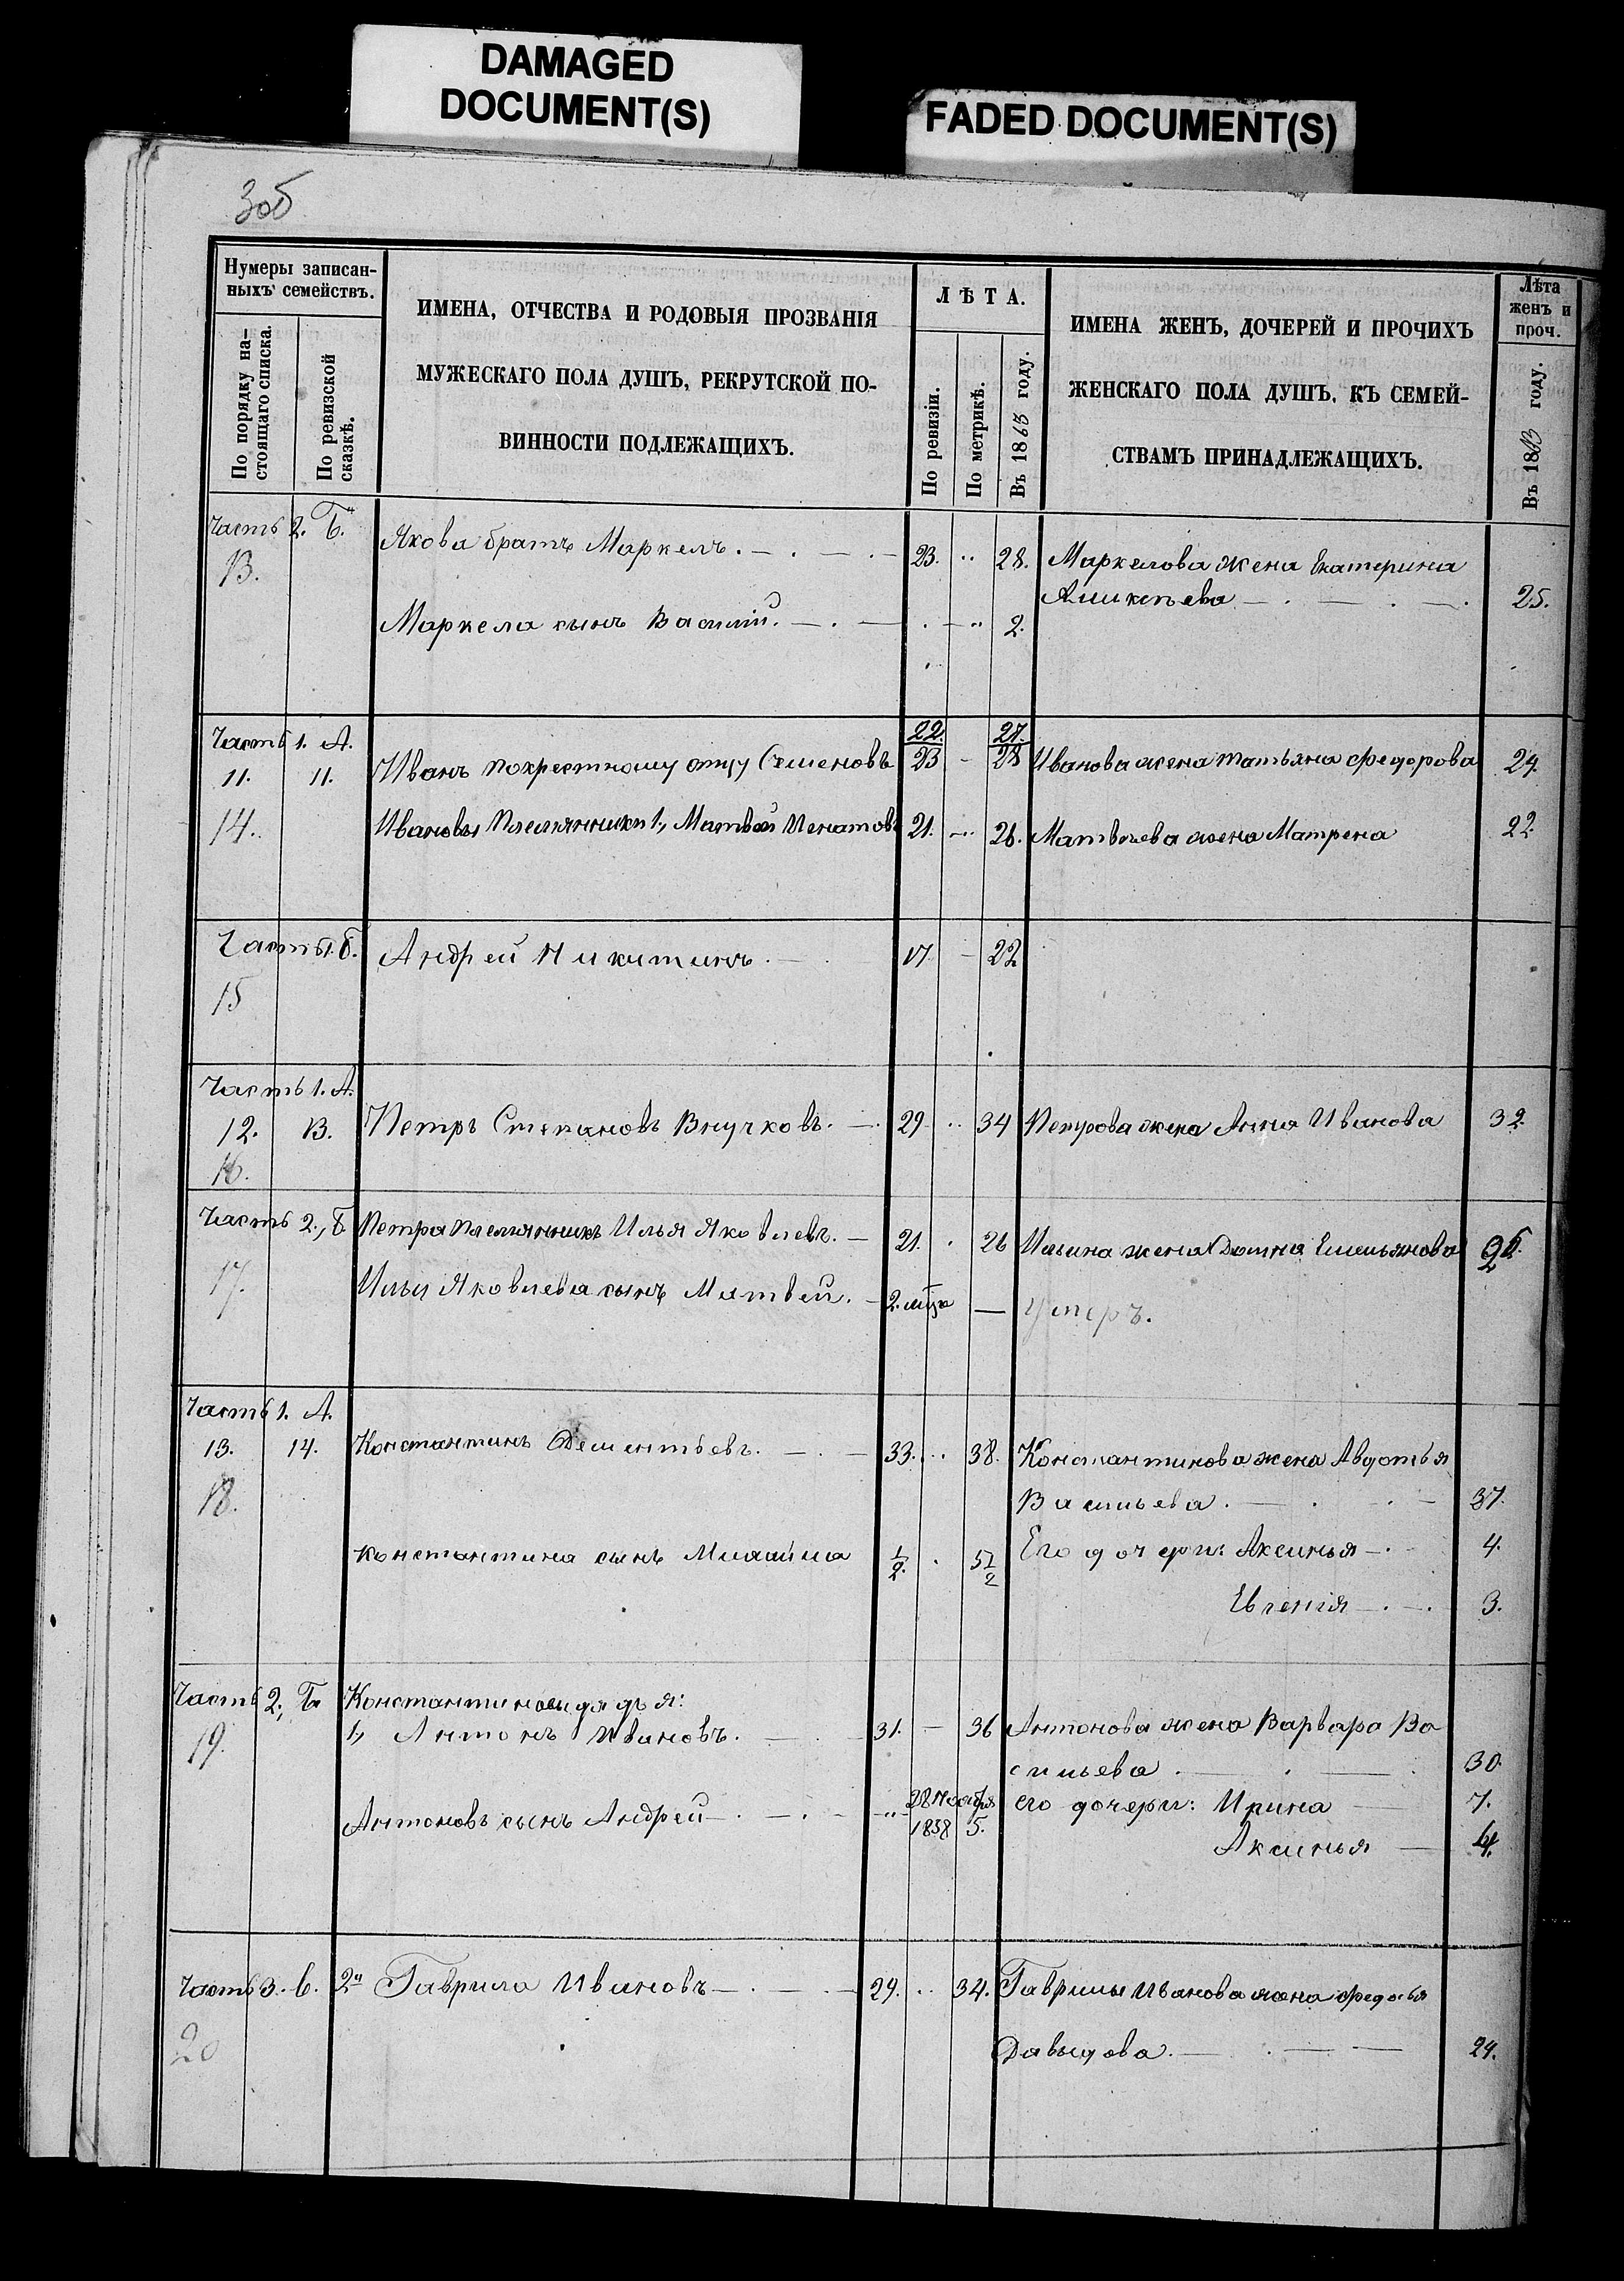 DAMAGED
DOCUMENT(S)
FADED DOCUMENT(S)
305
Нумеры записан-
ныхъ семействъ.
По порядку на-
стоящаго списка.
По ревизской
сказкѣ.
ИМЕНА, ОТЧЕСТВА И РОДОВЫЯ ПРОЗВАНІЯ
МУЖЕСКАГО ПОЛА ДУШЪ, РЕКРУТСКОЙ ПО-
ВИННОСТИ ПОДЛЕЖАЩИХЪ.
ЛѢТА.
По ревизіи.
По метрикѣ.
Въ 1863 году.
ИМЕНА ЖЕНЪ, ДОЧЕРЕЙ И ПРОЧИХЪ
ЖЕНСКАГО ПОЛА ДУШЪ, КЪ СЕМЕЙ-
СТВАМЪ ПРИНАДЛЕЖАЩИХЪ.
Лѣта
женъ и
проч.
Въ 1863 году.
Часть 2. Б.
13.
Якова братъ Маркелъ. 23. 28. Маркелова жена Екатерина
25.
Маркела сынъ Василій. 2.
Часть 1. А.
22. 27.
11. 11. Иванъ по крестному отцу Семеновъ 23 28 Иванова жена Татьяна Федорова 24.
14. Ивановы племянники 1, Матвей Игнатовъ 21. 26. Матвѣева жена Матрена 22.
Часть 1. Б. Андрей Никитинъ. 17 22
15
Часть 1. А.
12. 13. Петръ Степановъ Внучковъ. 29 34 Петрова жена Анна Иванова 32.
16.
Часть 2., Б Петра племянникъ Илья Яковлевъ. 21. 26 Ильина жена Домна Емельянова
17. Ильи Яковлева сынъ Матвей. 2. — умеръ.
Часть 1. А.
13. 14. Константинъ Дементьевъ. 33. 38. Константинова жена Авдотья
18. Васильева. 37.
Константина сынъ 1/2. 5 1/2 Его дочери: Аксинья 4.
Евгенія 3.
Часть 2., Б. Константиновы дядья:
19. 1, Антонъ Ивановъ. 31. 36 Антонова жена Варвара Ва
сильева 30.
Антоновъ сынъ Андрей 28 Ноября
1858 5. его дочери: Ирина 7.
Аксинья 4.
Часть 3. В. 2й Гаврила Ивановъ 29. 34. Гаврилы Иванова жена Федосья
20 Давыдова. 24.